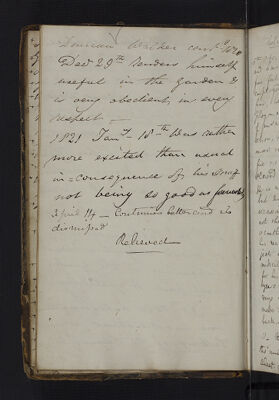 Duncan Walker cont.d
Dec.r 29th renders himself
useful in the garden &
is very obedient in every
respect —
1821 Jan.y 18th Was rather
more excited than usual
in = consequence of his
not being so good as formerly
April 14 — Continues better and is
dismissed
Relieved